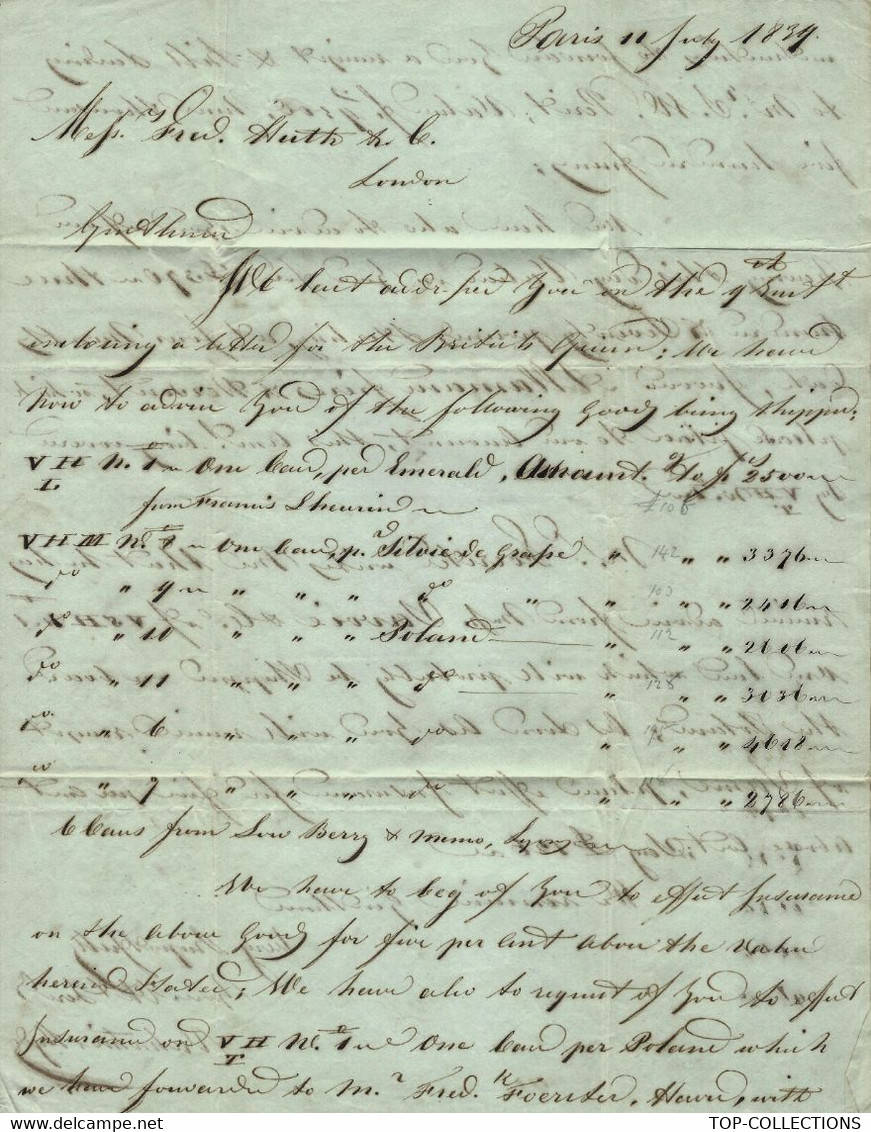 Paris 11 July 1839.
Mess.rs Fred. Huth & C.
London
Gentlemen
We last addr. per You on the 9th Inst
inclosing a letter for the British Queen; We have
now to advise You of the following Goods being shipped:
VH L N.o 1 One Case, per Emerald, Amount.g to f.cs 2500
from Francis Lheurin £106
VHM N.o 8 One Case, p.r Silvie de Grasse " 142 " " 3376
do " 9 " " " do " 103 " " 2416
do " 10 " " " Poland " 112 " " 2606
do " 11 " " " do " 128 " " 3036
do. " 6 " " " do " " " 4618
do " 7 " " " do " " " 2786
6 Cases from Low Berry & Memo, Lyons
We have to beg of You to effect Insurance
on the above Goods for five per Cent above the Value
herein stated; We have also to request of You to effect
Insurance on VH T N.o 1 One Case per Poland which
we have forwarded to M.r Fred.k Foerster, Havre, with
TOP-COLLECTIONS